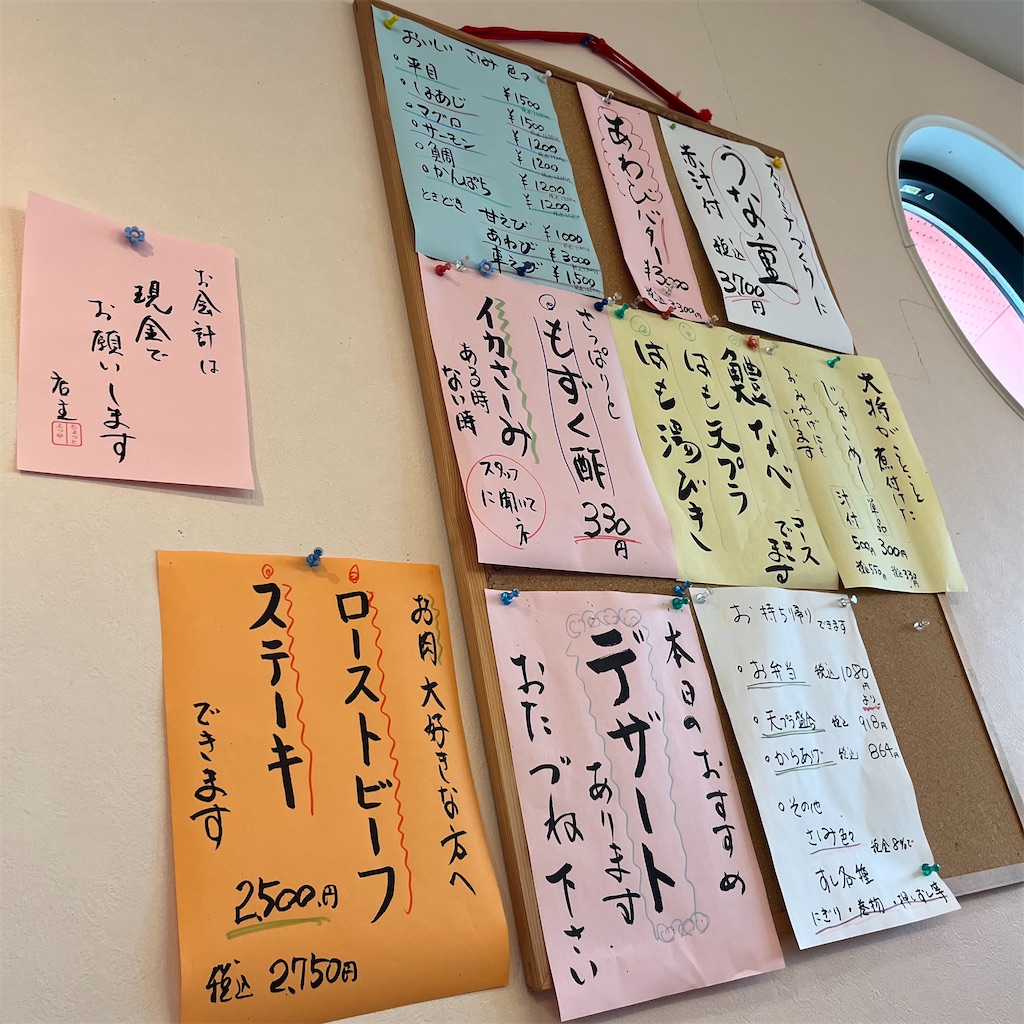 お会計は
現金で
お願いします
店主
おいしい さしみ 色々
・平目 ¥1500
・しまあじ ¥1500
・マグロ ¥1200
・サーモン ¥1200
・鯛 ¥1200
・かんぱち ¥1200
ときどき 甘えび ¥1000
あわび ¥3000
車えび ¥1,500
あわびバター
¥3000
スタミナづくりに
うな重
赤汁付
税込
3700円
さっぱりと
もずく酢
330円
イカさしみ
ある時
ない時
スタッフ
に聞いて
ネ
鱧なべ
コース
できます
はも天プラ
はも湯びき
大将がことことに
煮付けた
じゃこめし
おみやげにも
いけます
単品 300円
税込 330円
汁付 500円
税込 550円
お肉大好きな方へ
ローストビーフ
ステーキ
できます
2,500円
税込 2,750円
本日のおすすめ
デザート
あります
おたづね下さい
お持ち帰りできます
・お弁当 税込 1080円より
・天プラ盛合 税込 918円
・からあげ 税込 864円
・その他
さしみ色々
税金8%で
すし各種
にぎり・巻物・押しずし等